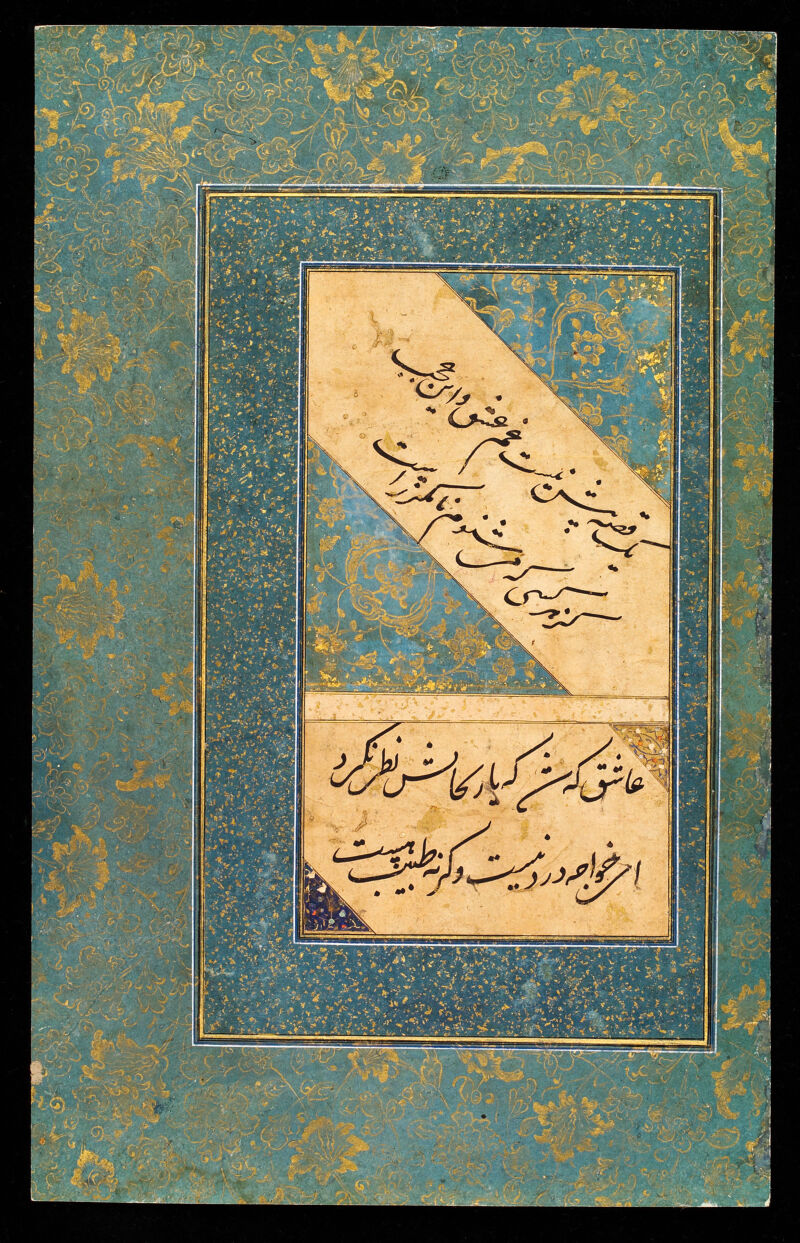 یک قصه بیش نیست غم عشق و این عجب
کز هر کسی که می شنوم نامکرر است
عاشق که شد که یار بحالش نظر نکرد
ای خواجه درد نیست وگرنه طبیب هست